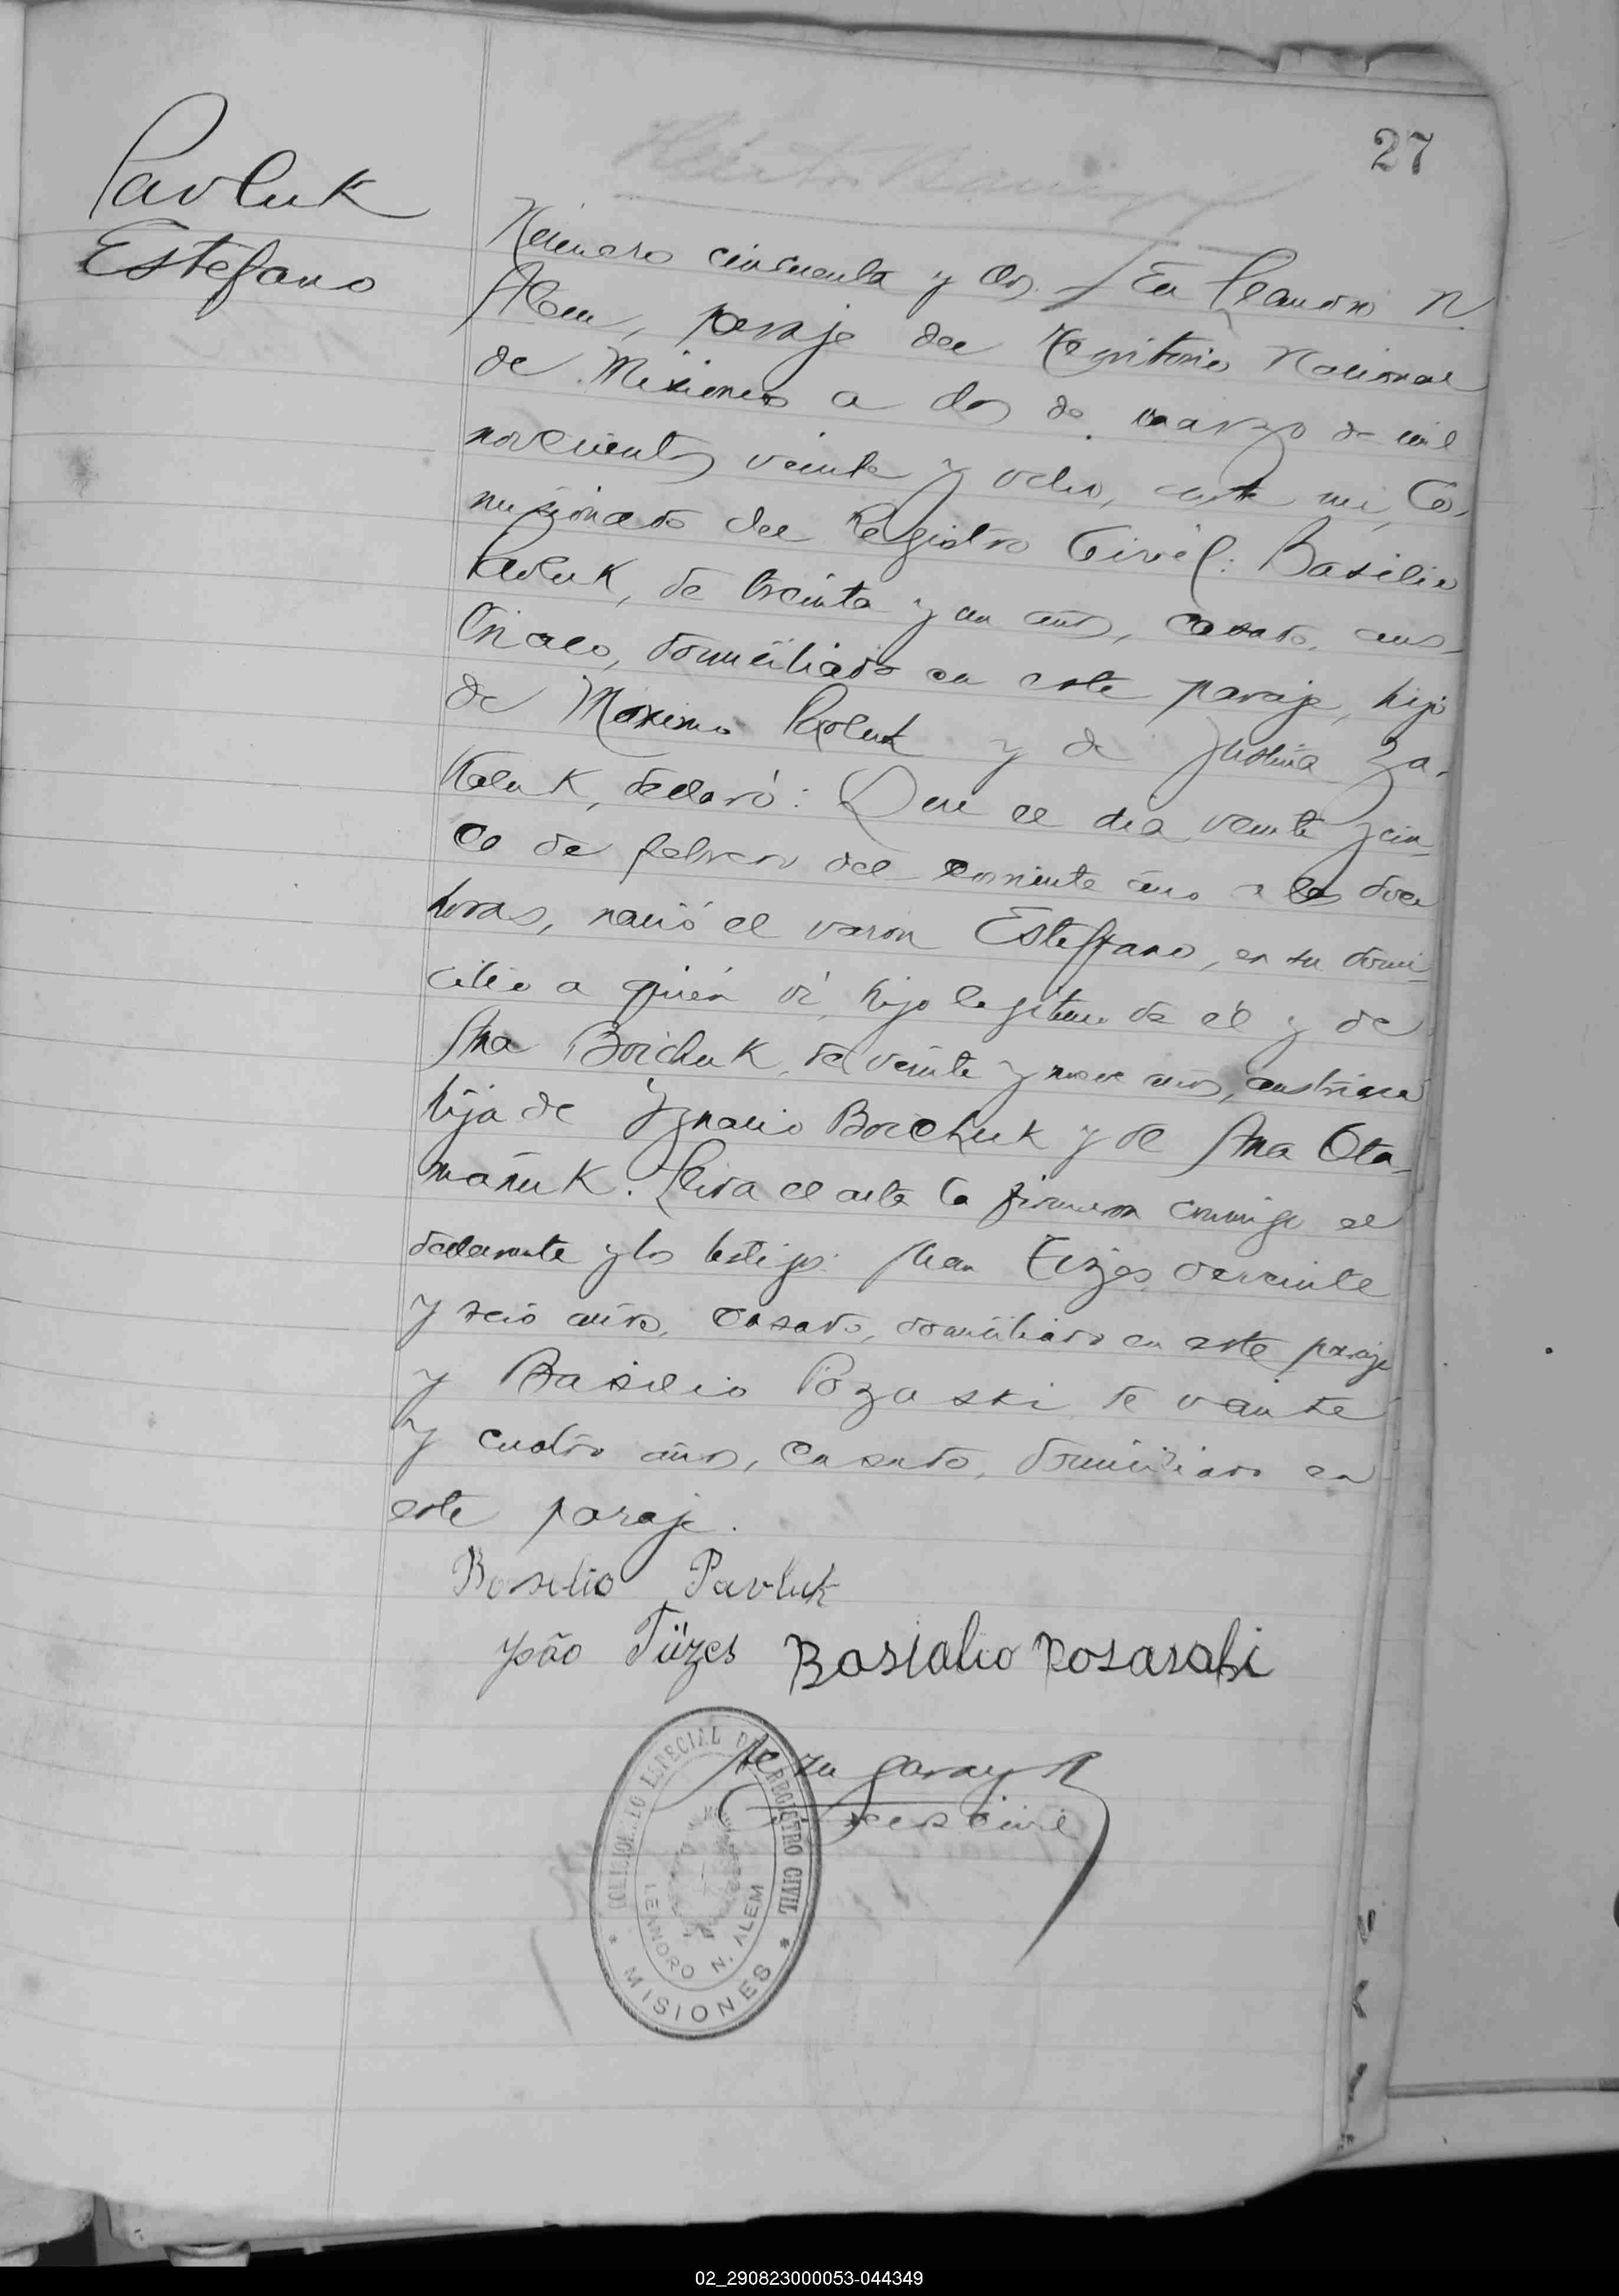 27
Pavluk
Estefano
Número cincuenta y dos. En Leandro N.
Alem, paraje del Territorio Nacional
de Misiones a dos de marzo de mil
novecientos veinte y ocho, ante mi, Co-
misionado del Registro Civil: Basilio
Pavluk, de treinta y un años, casado, aus-
triaco, domiciliado en este paraje, hijo
de Maximo Pavluk y de Justina Za-
kaluk, declaró: Que el dia veinte y cin-
co de febrero del corriente año a las doce
horas, nació el varon Esteffano, en su domi-
cilio a quién ví, hijo legitimo de él y de
Ana Boichuk, de veinte y nueve años, austriaca
hija de Ygnacio Boichuk y de Ana Ota-
mañuk. Leida el acta la firmaron conmigo el
declarante y los testigos: Juan Tizes, de veinte
y seis años, casado, domiciliado en este paraje
y Basilio Pozaski de veinte
y cuatro años, casado, domiciliado en
este paraje.
Basilio Pavluk
João Tüzes Basialio Rosaraki
COMISIONADO ESPECIAL DEL REGISTRO CIVIL
LEANDRO N. ALEM
* MISIONES *
02_290823000053-044349